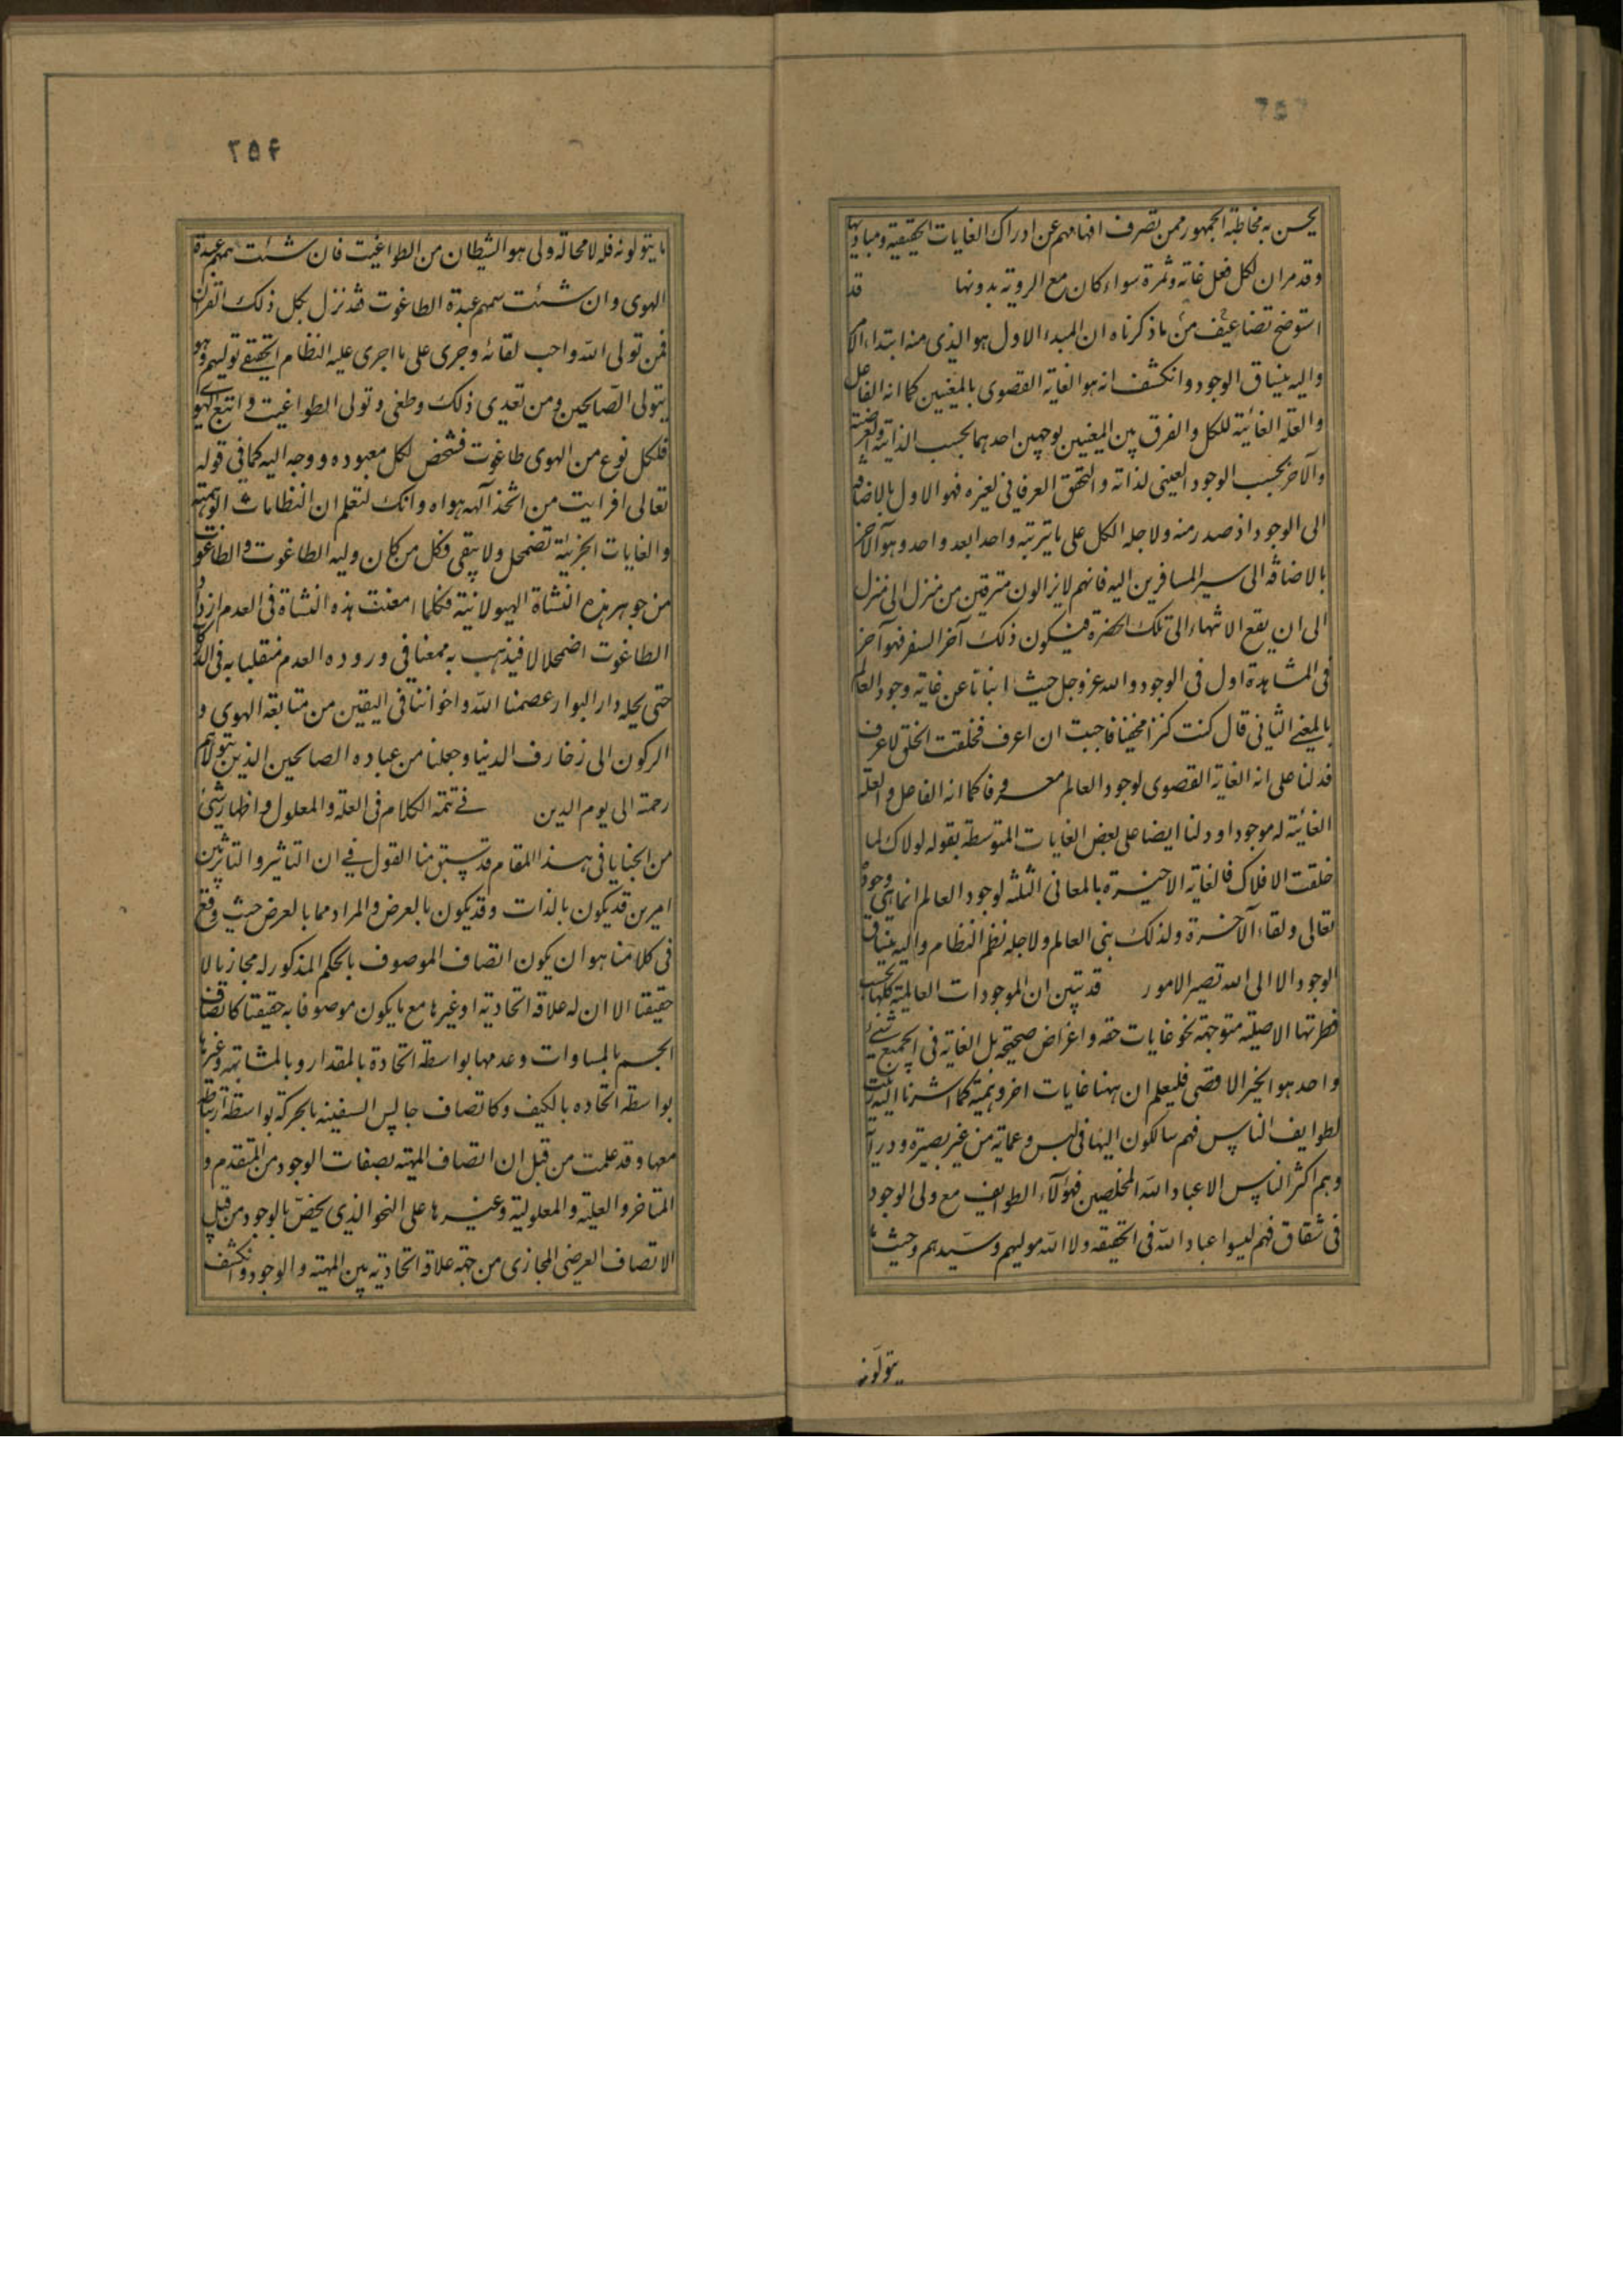 يحسن به مخاطبة الجمهور ممن تصرف افهامهم عن ادراك الغايات الحقيقية ومباديها
وقد مر ان لكل فعل غاية وثمرة سواء كان مع الروية بدونها قد
استوضح تضاعيف من ما ذكرناه ان المبدء الاول هو الذي منه ابتداء الامر
واليه ينساق الوجود وانكشف انه هو الغاية القصوى بالمعنيين كما انه الفاعل
والعلة الغائية للكل والفرق بين المعنيين بوجهين احدهما بحسب الذاتية والعرضية
والآخر بحسب الوجود العيني لذاته والتحقق العرفاني لغيره فهو الاول بالاضافة
الى الوجود اذ صدر منه ولاجله الكل على ما يترتبه واحدا بعد واحد وهو الآخر
بالاضافة الى سير المسافرين اليه فانهم لا يزالون مترقين من منزل الى منزل
الى ان يقع الانتهاء الى تلك الحضرة فيكون ذلك آخر السفر فهو آخر
في المشاهدة اول في الوجود والله عز وجل حيث انبانا عن غاية وجود العالم
بالمعنى الثاني قال كنت كنزا مخفيا فاحببت ان اعرف فخلقت الخلق لاعرف
فدلنا على انه الغاية القصوى لوجود العالم معروفا كما انه الفاعل والعلة
الغائية له موجودا ودلنا ايضا على بعض الغايات المتوسطة بقوله لولاك لما
خلقت الافلاك فالغاية الاخيرة بالمعاني الثلثه لوجود العالم انما هي وجوده
تعالى ولقاء الآخرة ولذلك بنى العالم ولاجله نظم النظام واليه ينساق
الوجود الا الى الله تصير الامور قد تبين ان الموجودات العالمية كلها بحسب
فطرتها الاصلية متوجهة نحو غايات حقه واغراض صحيحة بل الغاية في الجميع شيء
واحد هو الخير الاقصى فليعلم ان ههنا غايات اخر وهمية كما اشرنا اليه زينت
لطوايف الناس فهم سالكون اليها في لبس وعماية من غير بصيرة ودراية
وهم اكثر الناس الا عباد الله المخلصين فهؤلآء الطوايف مع ولى الوجود
في شقاق فهم ليسوا عباد الله في الحقيقه ولا الله موليهم وسيدهم وحيث ما
يتولونه
٢٥۴
ما يتولونه فله لا محالة ولى هو الشيطان من الطواغيت فان شئت سمهم عبدة
الهوى وان شئت سمهم عبدة الطاغوت فقد نزل بكل ذلك القران
فمن تولى الله واحب لقائه وجرى على ما اجرى عليه النظام الحقيقي توليهم وهو
يتولى الصالحين ومن تعدى ذلك وطغى وتولى الطواغيت واتبع الهوى
فلكل نوع من الهوى طاغوت فشخص لكل معبوده ووجه اليه كما في قوله
تعالى افرايت من اتخذ آلهه هواه وانك لتعلم ان النظامات الوهمية
والغايات الجزئية تضمحل ولا يبقى فكل من كان وليه الطاغوت والطاغوت
من جوهر هذه النشاة الهيولانية فكلما امعنت هذه النشاة في العدم ازداد
الطاغوت اضمحلالا فيذهب به ممعنا في وروده العدم منقلبا به في الدركات
حتى يحله دار البوار عصمنا الله واخواننا في اليقين من متابعة الهوى و
الركون الى زخارف الدنيا وجعلنا من عباده الصالحين الذين يتولاهم
رحمة الى يوم الدين في تتمة الكلام في العلة والمعلول واظهار شيء
من الخبايا في هذا المقام قد سبق منا القول في ان التاثير والتاثر بين
امرين قد يكون بالذات وقد يكون بالعرض والمراد مما بالعرض حيث وقع
في كلامنا هو ان يكون اتصاف الموصوف بالحكم المذكور له مجازيا لا
حقيقيا الا ان له علاقة اتحادية او غيرها مع ما يكون موصوفا به حقيقتا كاتصاف
الجسم بالمساوات وعدمها بواسطة اتحاده بالمقدار وبالمشابهة وغيرها
بواسطة اتحاده بالكيف وكاتصاف جالس السفينه بالحركة بواسطة ارتباطه
معها وقد علمت من قبل ان اتصاف المهية بصفات الوجود من المتقدم و
المتاخر والعلية والمعلولية وغيرها على النحو الذي يخص بالوجود من قبيل
الاتصاف العرضي المجازي من جهة علاقة اتحادية بين المهية والوجود وانكشف